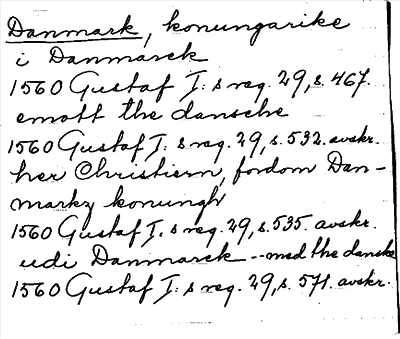 Danmark, konungarike
i Danmarck
1560 Gustaf I: s reg. 29, s. 467.
emott the dansche
1560 Gustaf I: s reg. 29, s. 532. avskr.
her Christiern, fordom Dan-
markz konungh
1560 Gustaf I: s reg. 29, s. 535. avskr.
udi Danmarck -- med the danske
1560 Gustaf I: s reg. 29, s. 571. avskr.